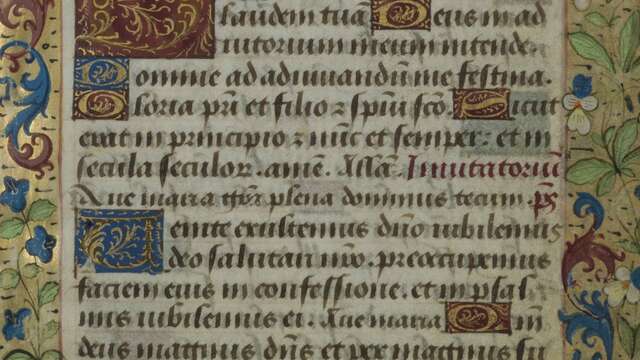 laudem tuā. Deus in ad
iutorium meum intende
Domine ad adiuuandum me festina.
Gloria pr̄i et filio ⁊ spūi scō. Sicut
erat in principio ⁊ nūc et semper: et in
secula seculor. amē. Allā. Inuitatoriū
Aue maria gr̄a plena dominus tecum. p̄s
Uenite exultemus dn̄o iubilemus
deo salutari nr̄o. preoccupemus
faciem eius in confessione. et in psal
mis iubilemus ei. Aue maria Qm̄
deus magnus dn̄s et rex magnus su